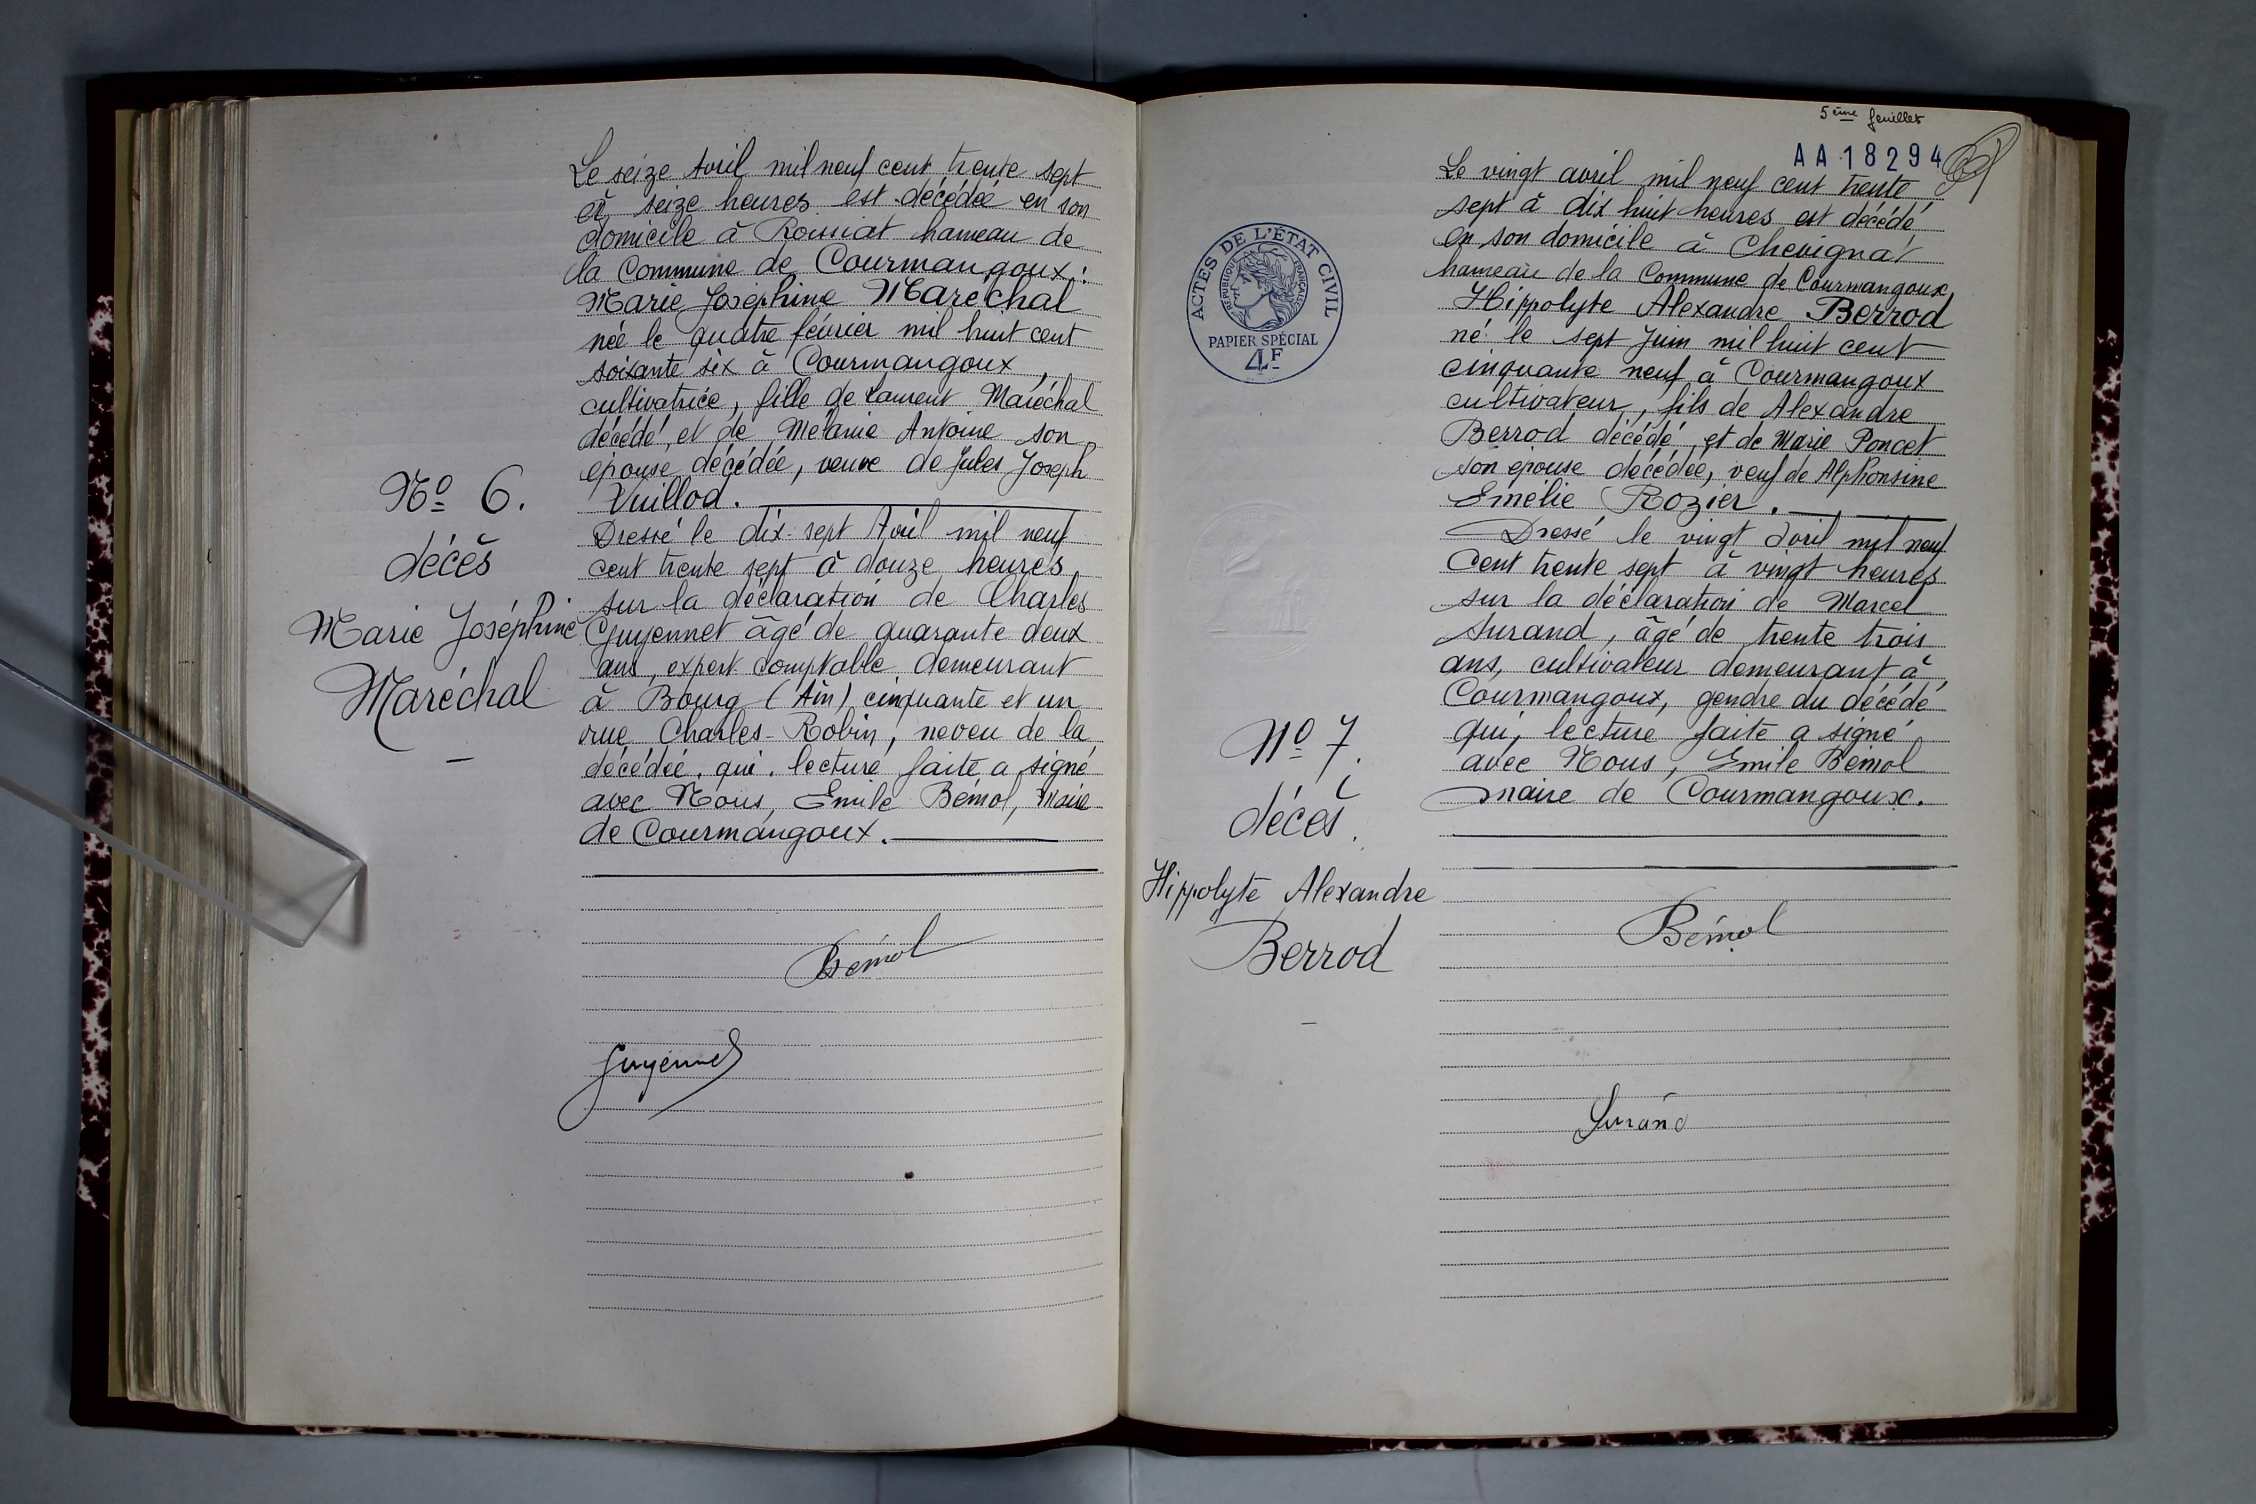 Le seize Avril mil neuf cent trente sept
à seize heures est décédée en son
domicile à Roissiat hameau de
la Commune de Courmangoux :
Marie Joséphine Maréchal
née le quatre février mil huit cent
soixante six à Courmangoux,
cultivatrice, fille de Laurent Maréchal
décédé, et de Mélanie Antoine son
épouse décédée, veuve de Jules Joseph
Vuillod.
Dressé le dix-sept Avril mil neuf
cent trente sept à douze heures
sur la déclaration de Charles
Guyennet âgé de quarante deux
ans, expert comptable demeurant
à Bourg (Ain) cinquante et un
rue Charles-Robin, neveu de la
décédée, qui, lecture faite a signé
avec Nous, Emile Bémol, Maire
de Courmangoux.
No 6.
décès
Marie Joséphine
Maréchal
Bémol
Guyennet
5ème feuillet
AA 18294
ACTES DE L'ÉTAT CIVIL
RÉPUBLIQUE FRANÇAISE
PAPIER SPÉCIAL
4F
Le vingt avril mil neuf cent trente
sept à dix huit heures est décédé
en son domicile à Chevignat
hameau de la Commune de Courmangoux
Hippolyte Alexandre Berrod
né le sept Juin mil huit cent
cinquante neuf à Courmangoux
cultivateur, fils de Alexandre
Berrod décédé, et de Marie Poncet
son épouse décédée, veuf de Alphonsine
Emélie Rozier.
Dressé le vingt avril mil neuf
Cent trente sept à vingt heures
sur la déclaration de Marcel
Surand, âgé de trente trois
ans, cultivateur demeurant à
Courmangoux, gendre du décédé
qui, lecture faite a signé
avec Nous, Emile Bémol
maire de Courmangoux.
No 7.
décès.
Hippolyte Alexandre
Berrod
Bémol
Surand